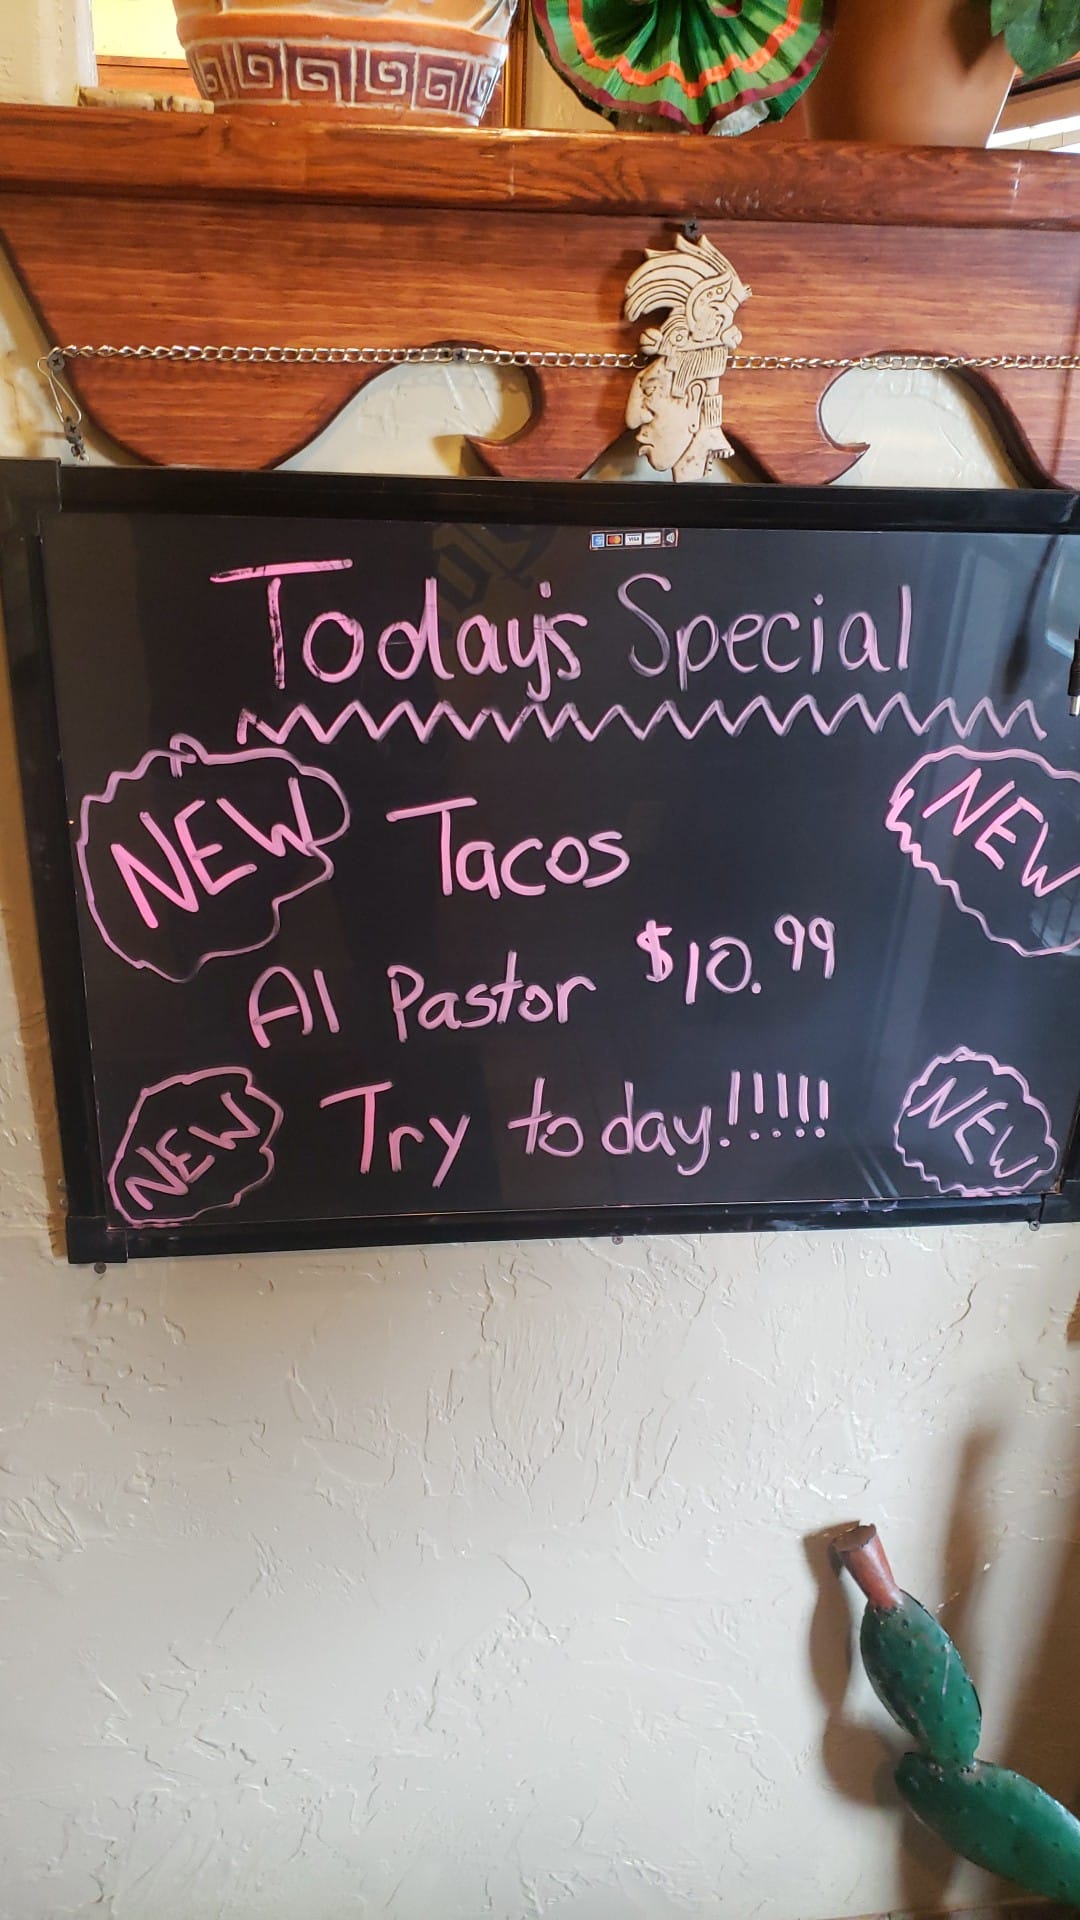 Today's Special
NEW Tacos NEW
Al Pastor $10.99
NEW Try today!!!!! NEW